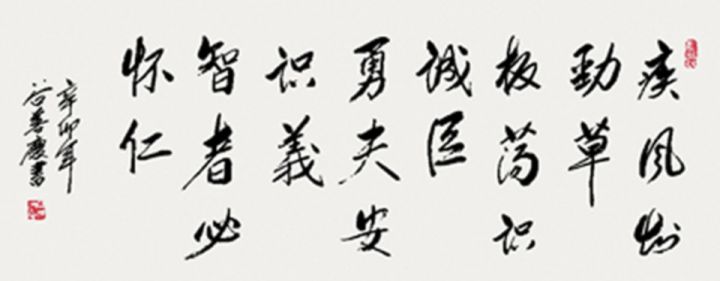 疾风知
劲草
板荡识
诚臣
勇夫安
识義
智者必
怀仁
辛卯年
谷善慶書